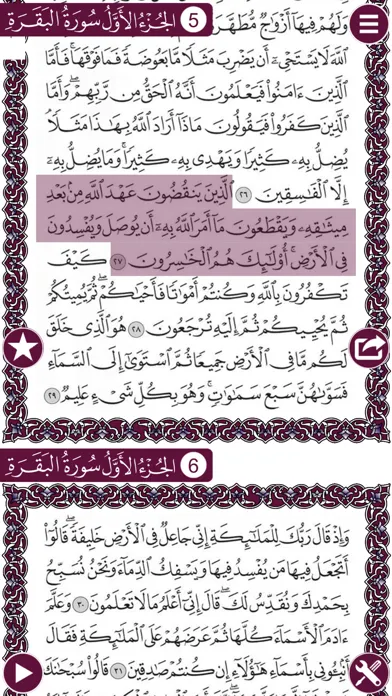 5 الجزء الأول سورة البقرة
وَلَهُمْ فِيهَا أَزْوَاجٌ مُّطَهَّرَ
اللَّهَ لَا يَسْتَحْيِۦٓ أَن يَضْرِبَ مَثَلًا مَّا بَعُوضَةً فَمَا فَوْقَهَا ۚ فَأَمَّا
الَّذِينَ ءَامَنُوا فَيَعْلَمُونَ أَنَّهُ الْحَقُّ مِن رَّبِّهِمْ ۖ وَأَمَّا
الَّذِينَ كَفَرُوا فَيَقُولُونَ مَاذَآ أَرَادَ اللَّهُ بِهَٰذَا مَثَلًا ۘ
يُضِلُّ بِهِۦ كَثِيرًا وَيَهْدِى بِهِۦ كَثِيرًا ۚ وَمَا يُضِلُّ بِهِۦٓ
إِلَّا الْفَٰسِقِينَ ٢٦ الَّذِينَ يَنقُضُونَ عَهْدَ اللَّهِ مِنۢ بَعْدِ
مِيثَٰقِهِۦ وَيَقْطَعُونَ مَآ أَمَرَ اللَّهُ بِهِۦٓ أَن يُوصَلَ وَيُفْسِدُونَ
فِى الْأَرْضِ ۚ أُولَٰٓئِكَ هُمُ الْخَٰسِرُونَ ٢٧ كَيْفَ
تَكْفُرُونَ بِاللَّهِ وَكُنتُمْ أَمْوَٰتًا فَأَحْيَٰكُمْ ۖ ثُمَّ يُمِيتُكُمْ
ثُمَّ يُحْيِيكُمْ ثُمَّ إِلَيْهِ تُرْجَعُونَ ٢٨ هُوَ الَّذِى خَلَقَ
لَكُم مَّا فِى الْأَرْضِ جَمِيعًا ثُمَّ اسْتَوَىٰٓ إِلَى السَّمَآءِ
فَسَوَّىٰهُنَّ سَبْعَ سَمَٰوَٰتٍ ۚ وَهُوَ بِكُلِّ شَىْءٍ عَلِيمٌ ٢٩
6 الجزء الأول سورة البقرة
وَإِذْ قَالَ رَبُّكَ لِلْمَلَٰٓئِكَةِ إِنِّى جَاعِلٌ فِى الْأَرْضِ خَلِيفَةً ۖ قَالُوٓا
أَتَجْعَلُ فِيهَا مَن يُفْسِدُ فِيهَا وَيَسْفِكُ الدِّمَآءَ وَنَحْنُ نُسَبِّحُ
بِحَمْدِكَ وَنُقَدِّسُ لَكَ ۖ قَالَ إِنِّىٓ أَعْلَمُ مَا لَا تَعْلَمُونَ ٣٠ وَعَلَّمَ
ءَادَمَ الْأَسْمَآءَ كُلَّهَا ثُمَّ عَرَضَهُمْ عَلَى الْمَلَٰٓئِكَةِ فَقَالَ
أَنۢبِـُٔونِى بِأَسْمَآءِ هَٰٓؤُلَآءِ إِن كُنتُمْ صَٰدِقِينَ ٣١ قَالُوا سُبْحَٰنَكَ